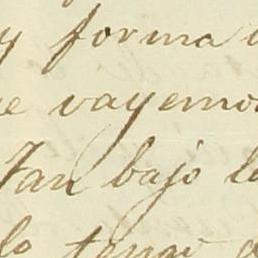 y forma
vayemo
Tan bajo l
lo tengo